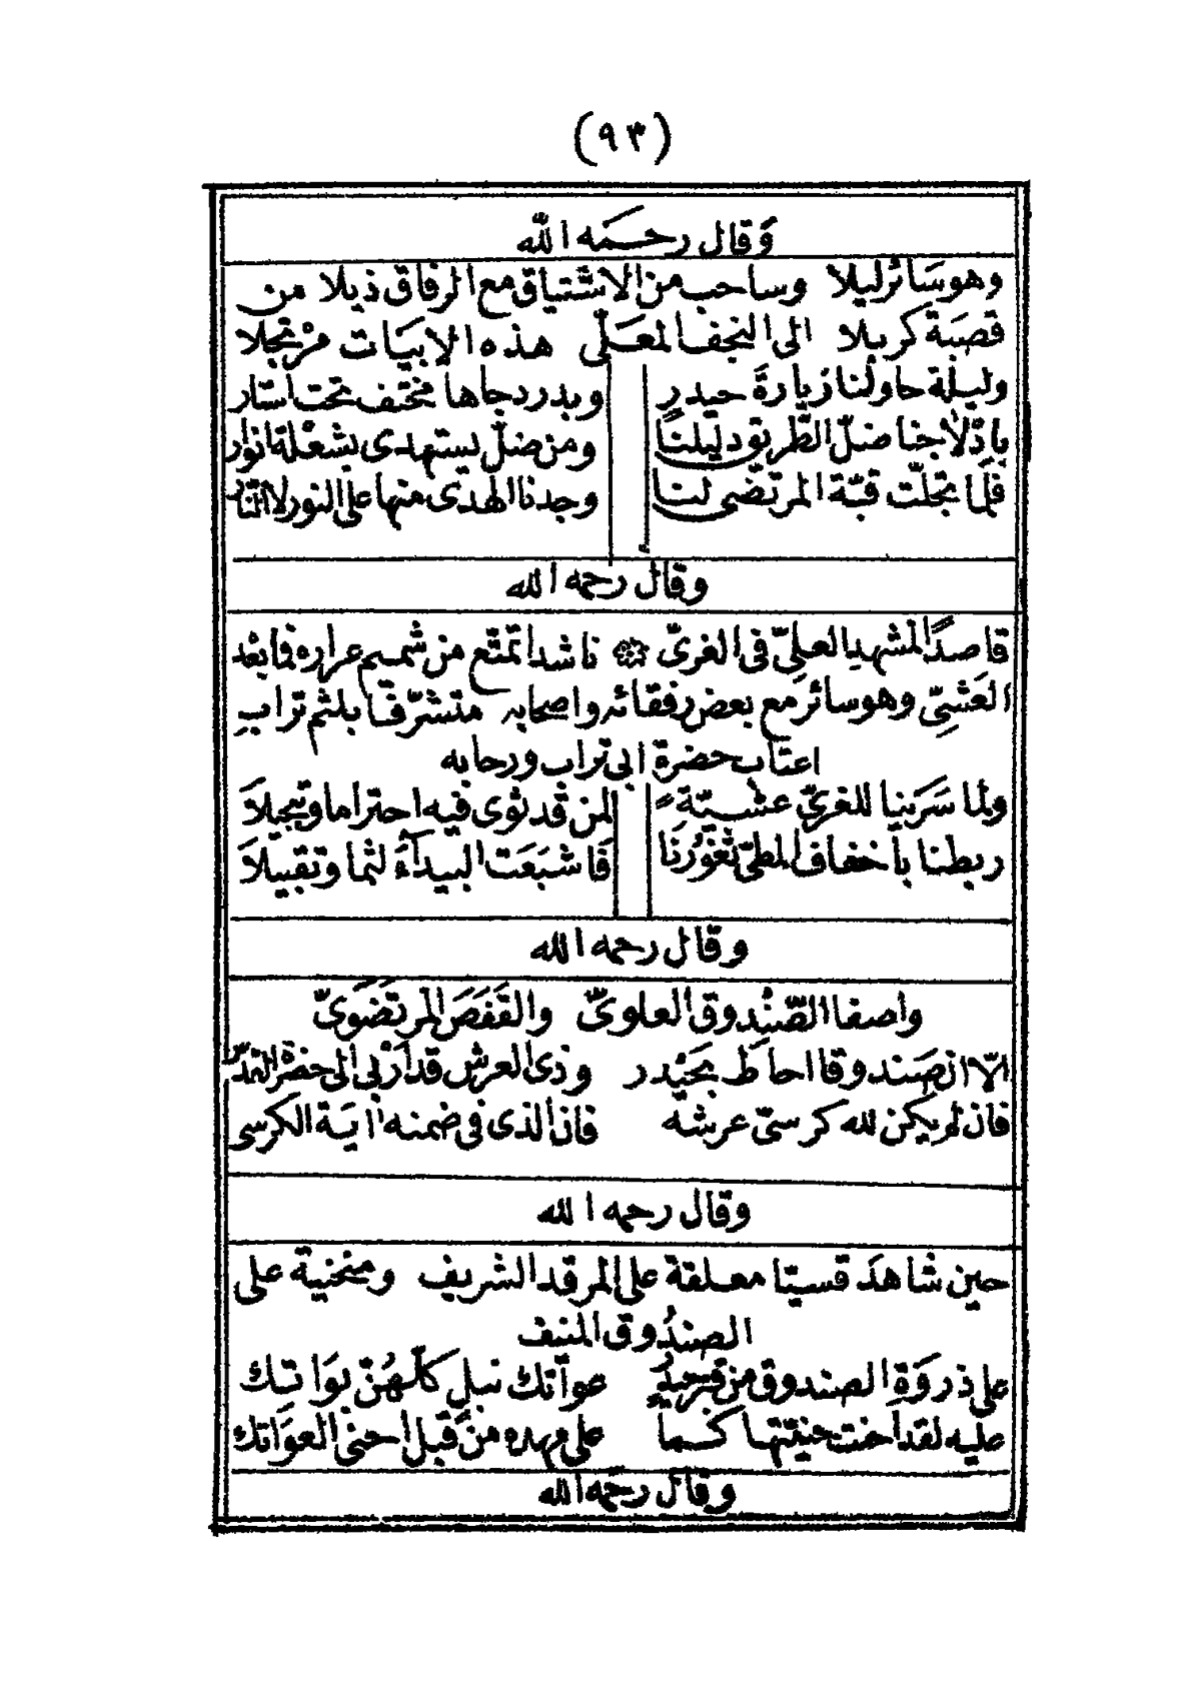 (٩٣)
وَقال رحمه الله
وهو سَائر ليلا وساحب من الاشتياق مع الرفاق ذيلا من
قصَبة كربلا الى النجف المعَلّى هذه الابيَات مرْتجلا
وليلة حاولنا زيارةَ حيدرٍ وبدر دجاها مختف تحت استار
بادْلاجنا ضلّ الطّريق دليلنا ومن ضلّ يستهدى بشعْلة انوار
فلما تجلّت قبّة المرتضى لنا وجدنا الهدى منها على النور لا النار
وقال رحمه الله
قاصدًا لمشهد العليّ فى الغريّ ناشدا تمتّع من شميم عرار فما بعْد
العَشيّ وهو سائر مع بعض رفقائه واصحابه متشرّفا بلثم تراب
اعتاب حضرة ابى تراب ورحابه
ولما سَرَينا للغريّ عشيّة لمن قد ثوى فيه احتراما وتبجيلا
ربطنا باخفاف المطىّ ثغوْرنا فاشبَعَت البيدآءَ لثما وتقبيلا
وقال رحمه الله
واصفا الصّنْدوق العلويّ والقفَصَ المرتضَوىّ
الا ان صَندوقا احاط بحَيْدر وذى العرش قد اربى الى حضرة القدس
فان لم يكن لله كرسىّ عرشه فان الذى فى ضمنه اية الكرسى
وقال رحمه الله
حين شاهدَ قسيّا معلقة على المرقد الشريف ومنحنية على
الصندُوق المنيف
على ذروَة الصندوق من عواتك نبل كلّهنّ بَواتك
عليه لقد احنت حنيّتها كما على مهده من قبل احنى العوَاتك
وقال رحمه الله